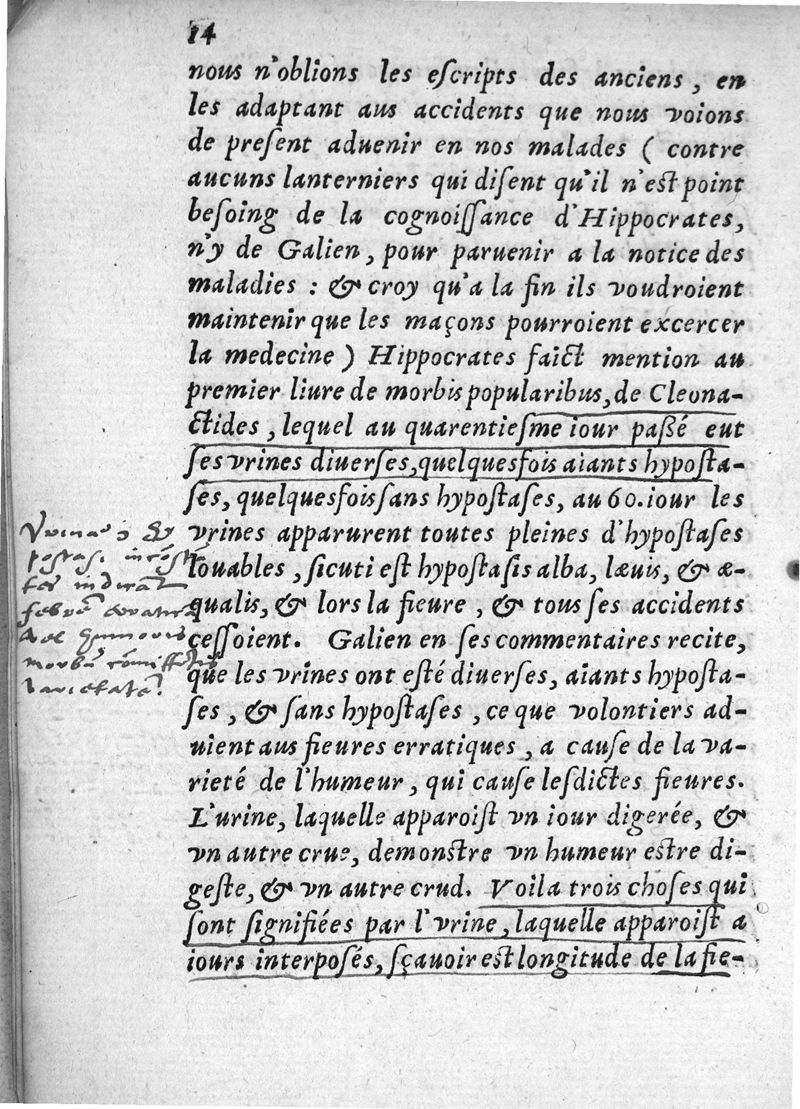 14
nous n'oblions les eſcripts des anciens, en
les adaptant aus accidents que nous voions
de preſent aduenir en nos malades ( contre
aucuns lanterniers qui diſent qu'il n'eſt point
beſoing de la cognoiſſance d'Hippocrates,
n'y de Galien, pour paruenir a la notice des
maladies : & croy qu'a la fin ils voudroient
maintenir que les maçons pourroient excercer
la medecine ) Hippocrates faict mention au
premier liure de morbis popularibus, de Cleona-
ctides, lequel au quarentieſme iour paßé eut
ſes vrines diuerſes, quelquesfois aiants hypoſta-
ſes, quelquesfois ſans hypoſtaſes, au 60. iour les
vrines apparurent toutes pleines d'hypoſtaſes
louables, ſicuti eſt hypoſtaſis alba, læuis, & æ-
qualis, & lors la fieure, & tous ſes accidents
ceſſoient. Galien en ſes commentaires recite,
que les vrines ont eſté diuerſes, aiants hypoſta-
ſes, & ſans hypoſtaſes, ce que volontiers ad-
uient aus fieures erratiques, a cauſe de la va-
rieté de l'humeur, qui cauſe leſdictes fieures.
L'urine, laquelle apparoiſt vn iour digerée, &
vn autre crue, demonſtre vn humeur eſtre di-
geſte, & vn autre crud. Voila trois choſes qui
ſont ſignifiées par l'vrine, laquelle apparoiſt a
iours interpoſés, ſçauoir eſt longitude de la fie-